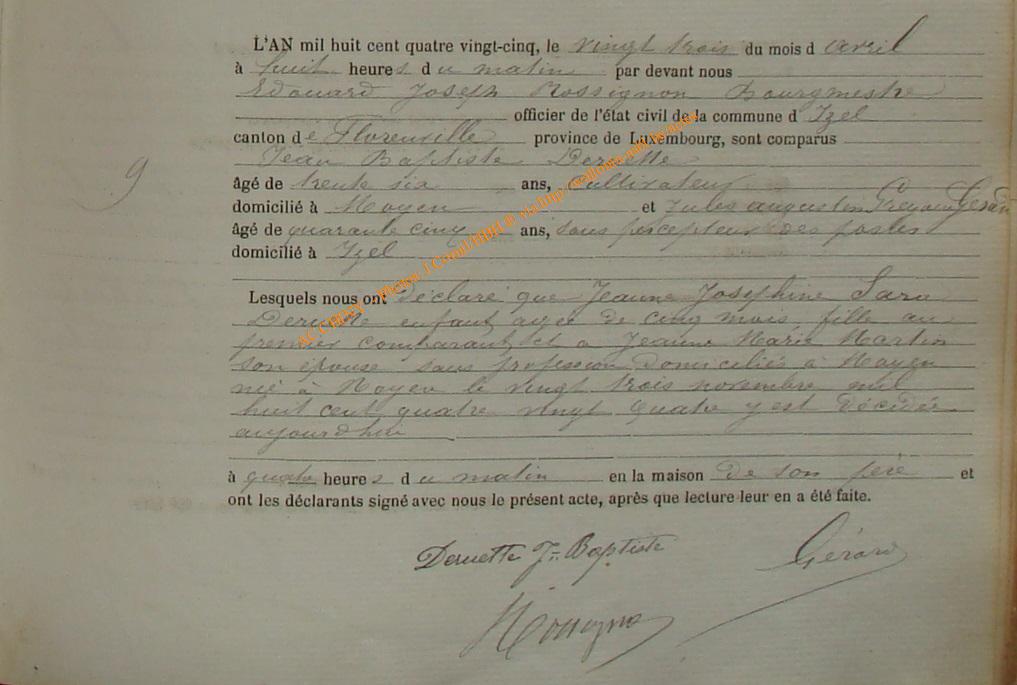 L'AN mil huit cent quatre vingt-cinq, le vingt trois du mois d avril
à huit heures du matin par devant nous
Edouard Joseph Rossignon Bourgmestre
officier de l'état civil de la commune d'Izel
canton de Florenville province de Luxembourg, sont comparus
Jean Baptiste Deruette
9
âgé de trente six ans, cultivateur
domicilié à Moyen et Jules augustin Gérard
âgé de quarante cinq ans, sous percepteur des postes
domicilié à Izel
Lesquels nous ont déclaré que Jeanne Josephine Sara
Deruette enfant agée de cinq mois, fille du
premier comparant et à Jeanne Marie Martin
son épouse sans profession domiciliés à Moyen
née à Moyen le vingt trois novembre mil
huit cent quatre vingt quatre y est décédée
aujourd'hui
à quatre heures du matin en la maison de son père et
ont les déclarants signé avec nous le présent acte, après que lecture leur en a été faite.
Deruette Jn Baptiste Gérard
Rossignon